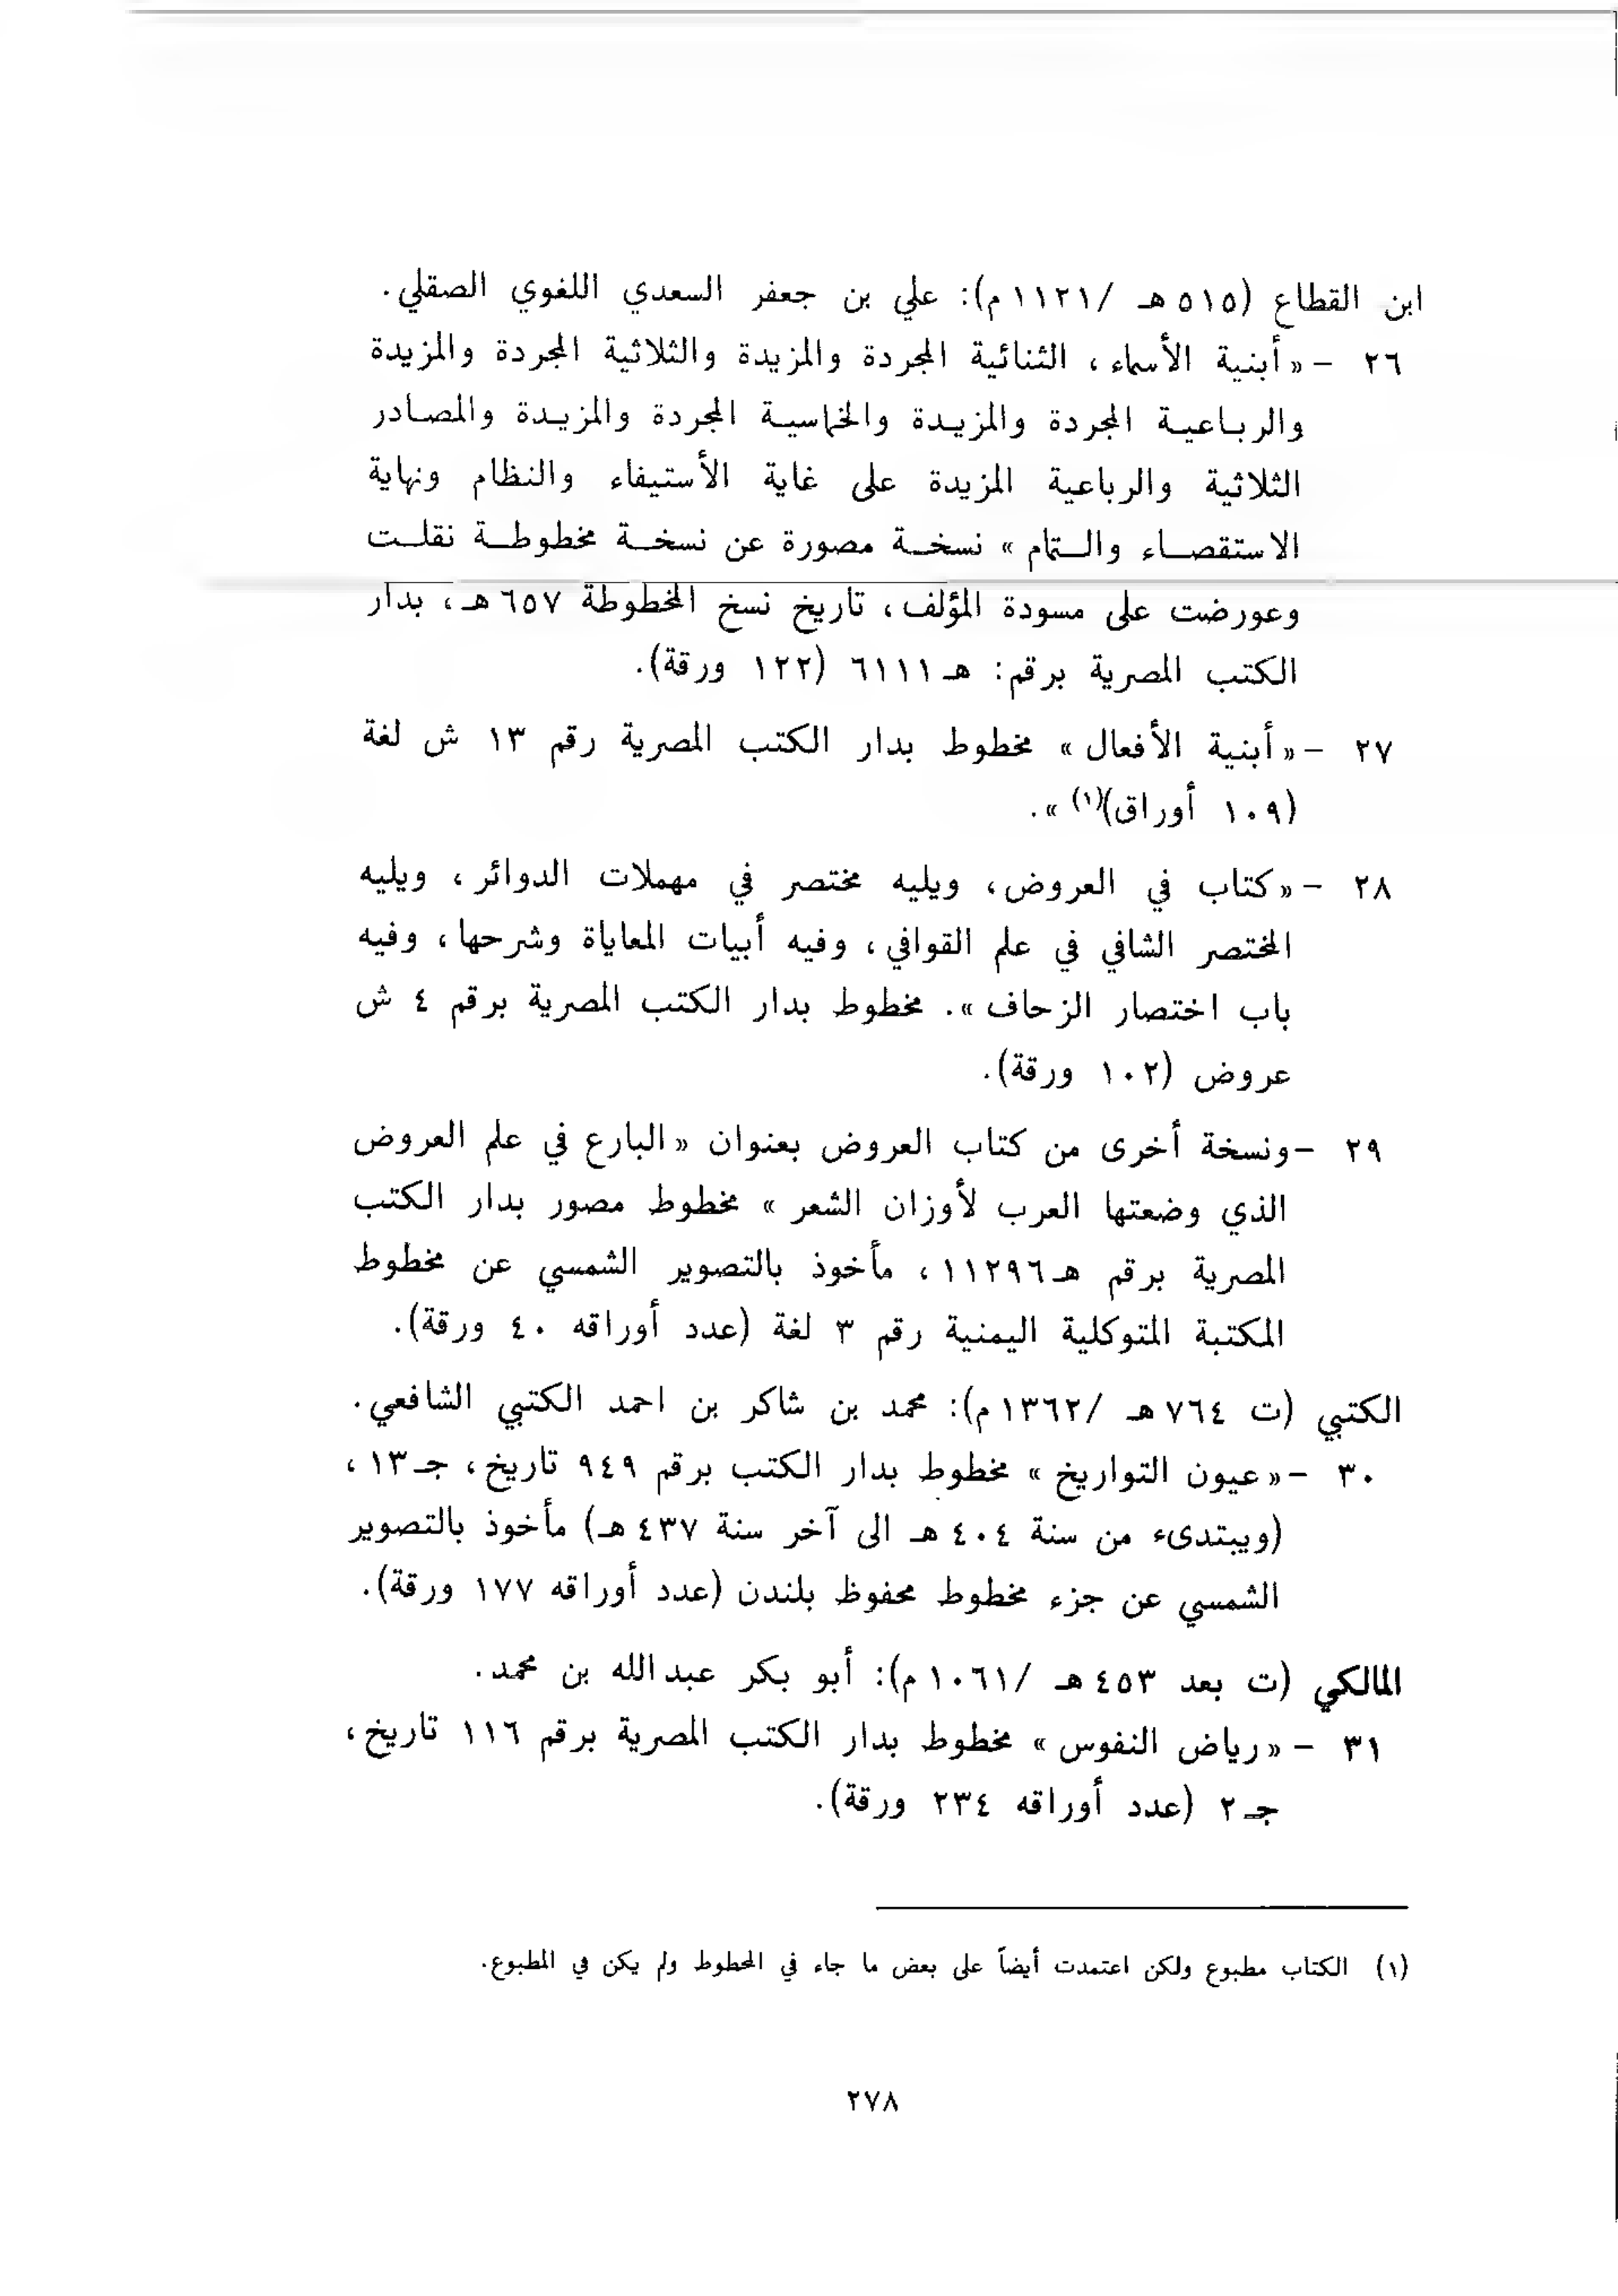 ابن القطاع (٥١٥ هـ /١١٢١ م): علي بن جعفر السعدي اللغوي الصقلي.
٢٦ - «أبنية الأسماء، الثنائية المجردة والمزيدة والثلاثية المجردة والمزيدة
والرباعية المجردة والمزيدة والخماسية المجردة والمزيدة والمصادر
الثلاثية والرباعية المزيدة على غاية الأستيفاء والنظام ونهاية
الاستقصاء والتمام» نسخة مصورة عن نسخة مخطوطة نقلت
وعورضت على مسودة المؤلف، تاريخ نسخ المخطوطة ٦٥٧ هـ، بدار
الكتب المصرية برقم: هـ ٦١١١ (١٢٢ ورقة).
٢٧ - «أبنية الأفعال» مخطوط بدار الكتب المصرية رقم ١٣ ش لغة
(١٠٩ أوراق)(١)».
٢٨ - «كتاب في العروض، ويليه مختصر في مهملات الدوائر، ويليه
المختصر الشافي في علم القوافي، وفيه أبيات المعاياة وشرحها، وفيه
باب اختصار الزحاف». مخطوط بدار الكتب المصرية برقم ٤ ش
عروض (١٠٢ ورقة).
٢٩ - ونسخة أخرى من كتاب العروض بعنوان «البارع في علم العروض
الذي وضعتها العرب لأوزان الشعر» مخطوط مصور بدار الكتب
المصرية برقم هـ ١١٢٩٦، مأخوذ بالتصوير الشمسي عن مخطوط
المكتبة المتوكلية اليمنية رقم ٣ لغة (عدد أوراقه ٤٠ ورقة).
الكتبي (ت ٧٦٤ هـ /١٣٦٢ م): محمد بن شاكر بن احمد الكتبي الشافعي.
٣٠ - «عيون التواريخ» مخطوط بدار الكتب برقم ٩٤٩ تاريخ، جـ ١٣،
(ويبتدىء من سنة ٤٠٤ هـ الى آخر سنة ٤٣٧ هـ) مأخوذ بالتصوير
الشمسي عن جزء مخطوط محفوظ بلندن (عدد أوراقه ١٧٧ ورقة).
المالكي (ت بعد ٤٥٣ هـ /١٠٦١ م): أبو بكر عبدالله بن محمد.
٣١ - «رياض النفوس» مخطوط بدار الكتب المصرية برقم ١١٦ تاريخ،
جـ ٢ (عدد أوراقه ٢٣٤ ورقة).
(١) الكتاب مطبوع ولكن اعتمدت أيضاً على بعض ما جاء في المخطوط ولم يكن في المطبوع.
٢٧٨